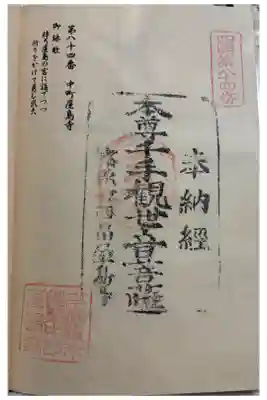 四國第八十四番
奉納經
本尊千手観世音菩薩
第八十四番　中町屋島寺
御詠歌
梓弓屋島の宮に詣でつつ
祈りをかけて勇む武夫